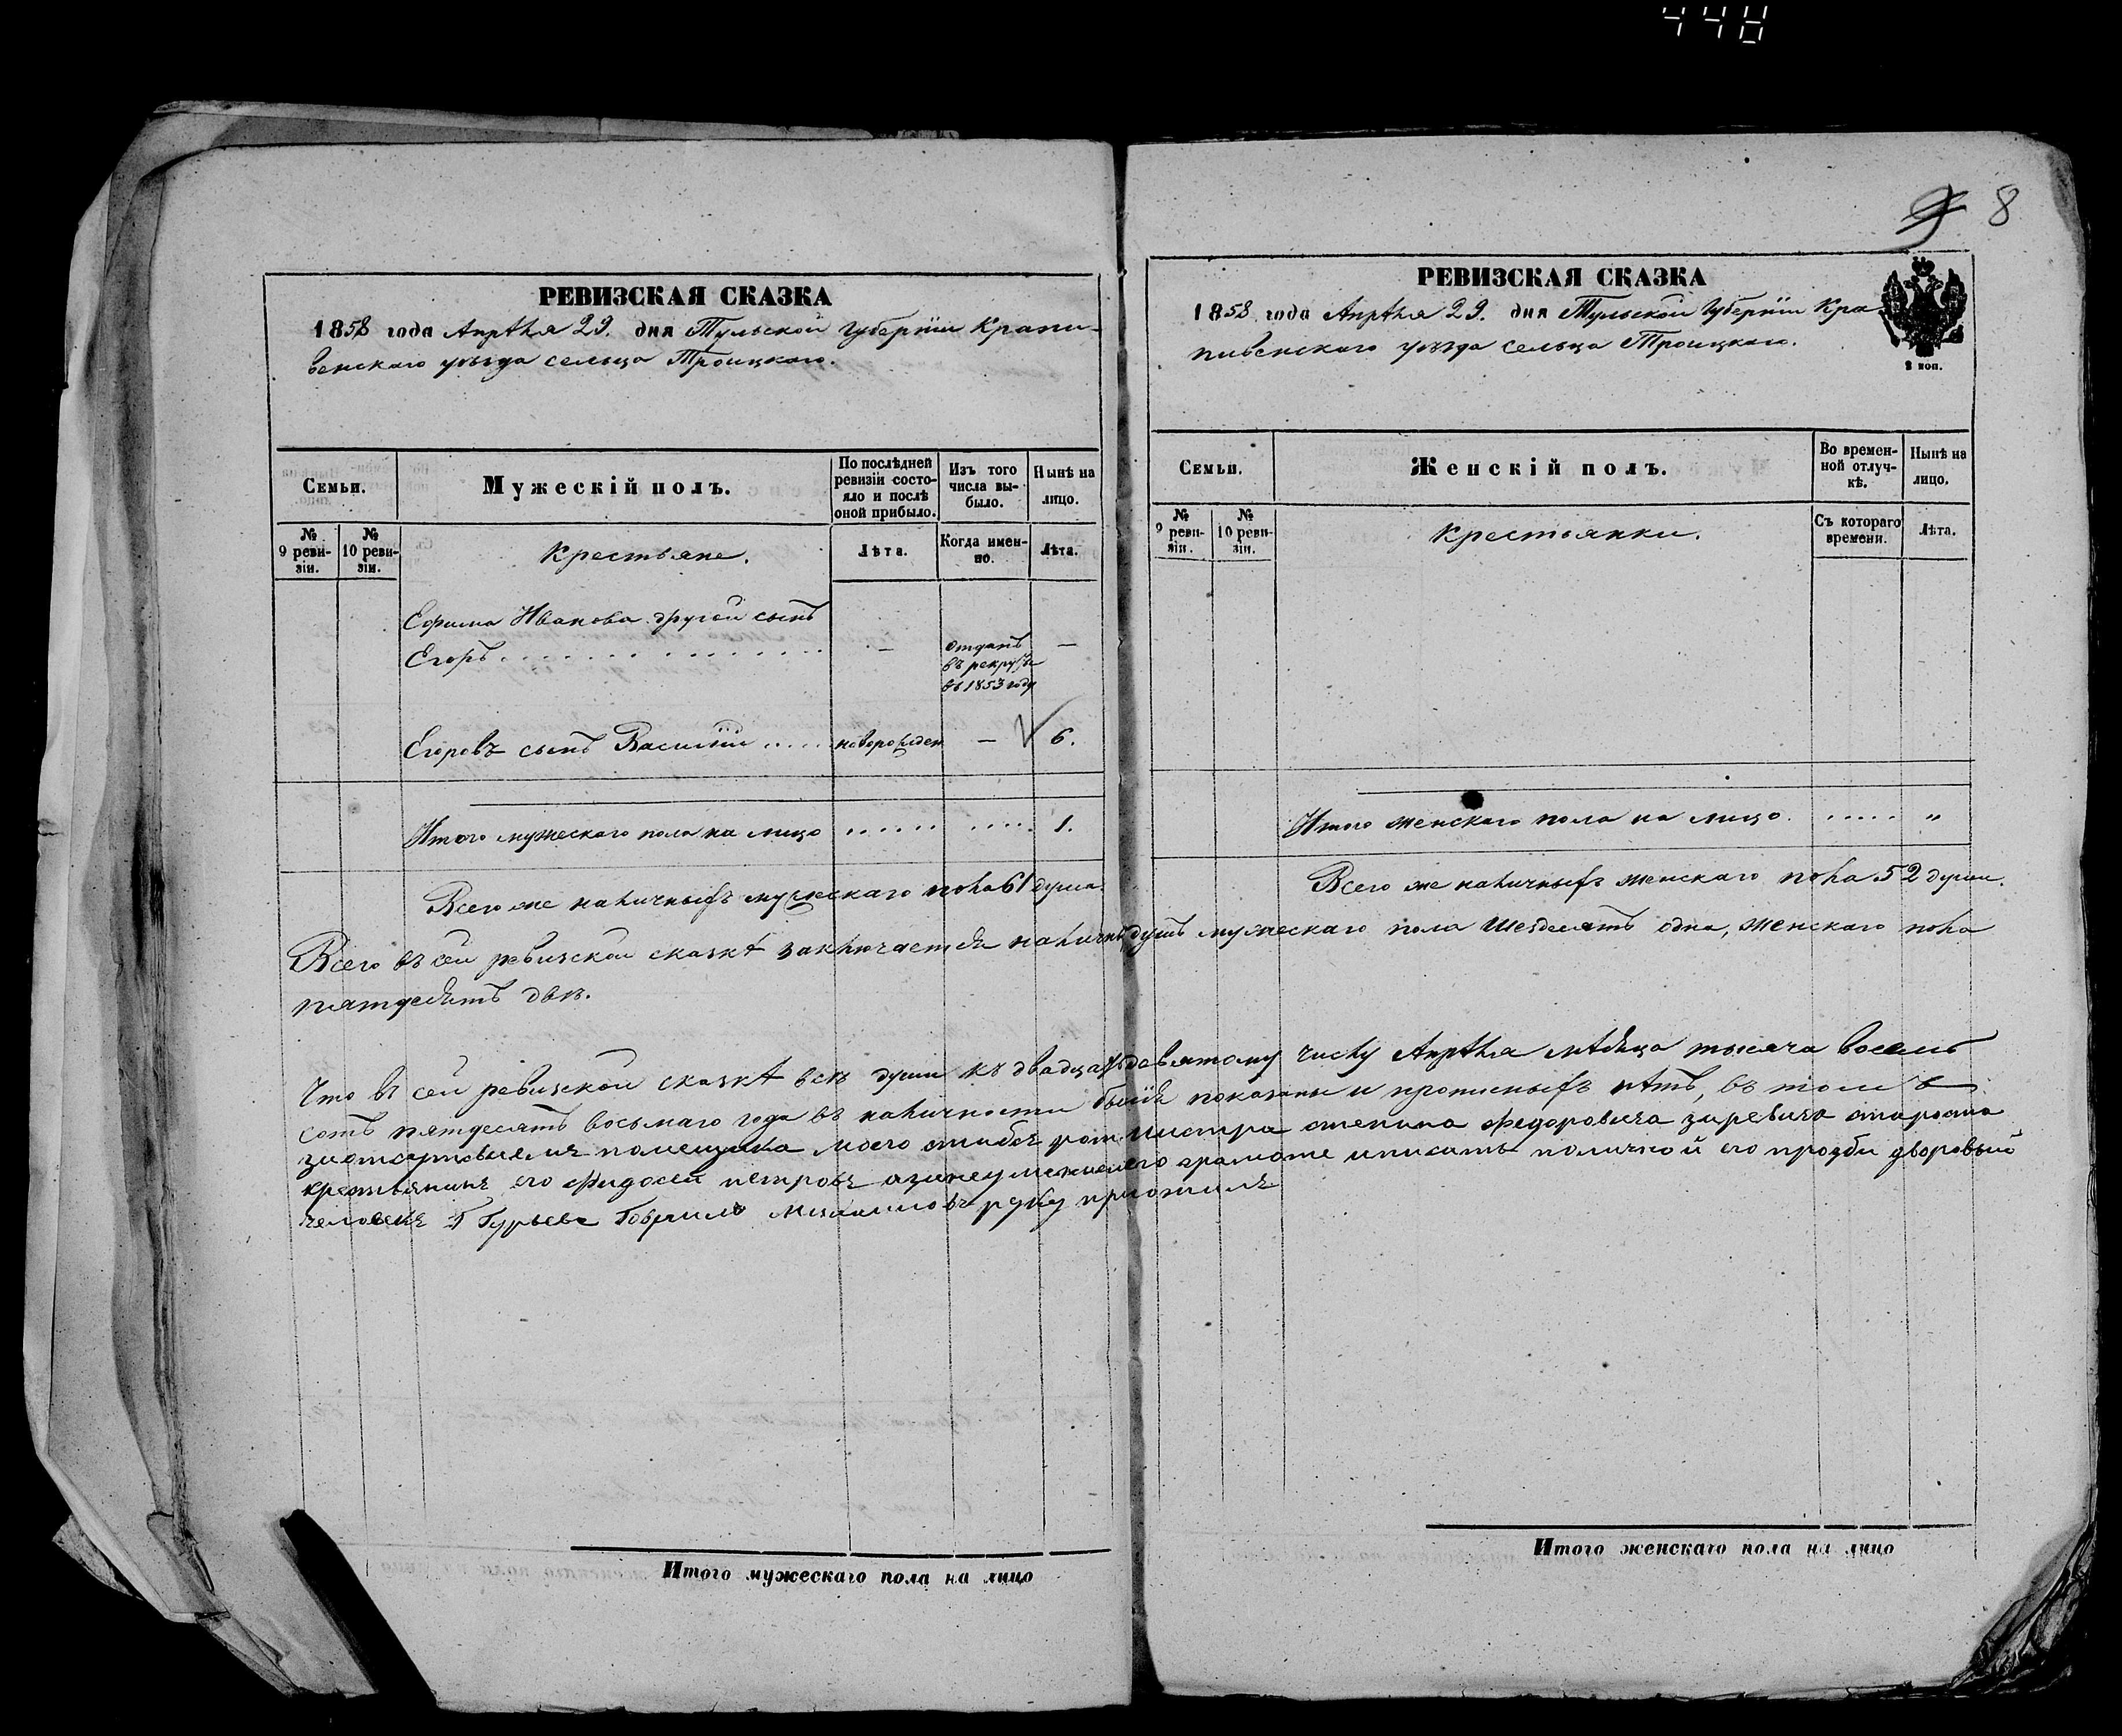 448
8
РЕВИЗСКАЯ СКАЗКА
1858 года Апрѣля 29. дня Тульской Губерніи Крапи-
венскаго уѣзда сельца Троицкаго.
Семьи.
Мужескій полъ.
По послѣдней ревизіи состо-яло и послѣ оной прибыло.
Изъ того числа вы-было.
Нынѣ на лицо.
№ 9 реви-зіи.
№ 10 реви-зіи.
Крестьяне.
Лѣта.
Когда имен-но.
Лѣта.
Ефима Иванова другой сынъ
Егоръ . . . . . . . . . . . . . . . — отданъ въ рекруты въ 1853 году —
Егоровъ сынъ Василій ..... новорожден — 6.
Итого мужескаго пола на лицо ...... ..... 1.
Всего же наличныхъ мужескаго пола 61 душа.
РЕВИЗСКАЯ СКАЗКА
1858 года Апрѣля 29. дня Тульской Губерніи Кра
пивенскаго уѣзда сельца Троицкаго.
2 коп.
Семьи.
Женскій полъ.
Во времен-ной отлуч-кѣ.
Нынѣ на лицо.
№ 9 реви-зіи.
№ 10 реви-зіи.
Крестьянки.
Съ котораго времени.
Лѣта.
Итого женскаго пола на лицо. ..... „
Всего же наличныхъ женскаго пола 52 души.
Всего въ сей ревизской сказкѣ заключается наличн душъ мужескаго пола шездесятъ одна, женскаго пола
пятдесятъ двѣ.
Что въ сей ревизской сказкѣ всѣ души къ двадцать девятому числу Апрѣля мѣсяца тысяча восемь
сотъ пятдесятъ восьмаго года въ наличности бывшія показаны и прописныхъ нѣтъ, въ томъ
заотсутствіемъ помещика моего штабсъ ротмистра степана федоровича старосто
крестьянинъ его Фидосей петровъ азанеумениемъ его грамоте иписать поличной его прозби дворовый
человекъ Г Гурьева Гаврило михаиловъ руку приложилъ
Итого мужескаго пола на лицо
Итого женскаго пола на лицо